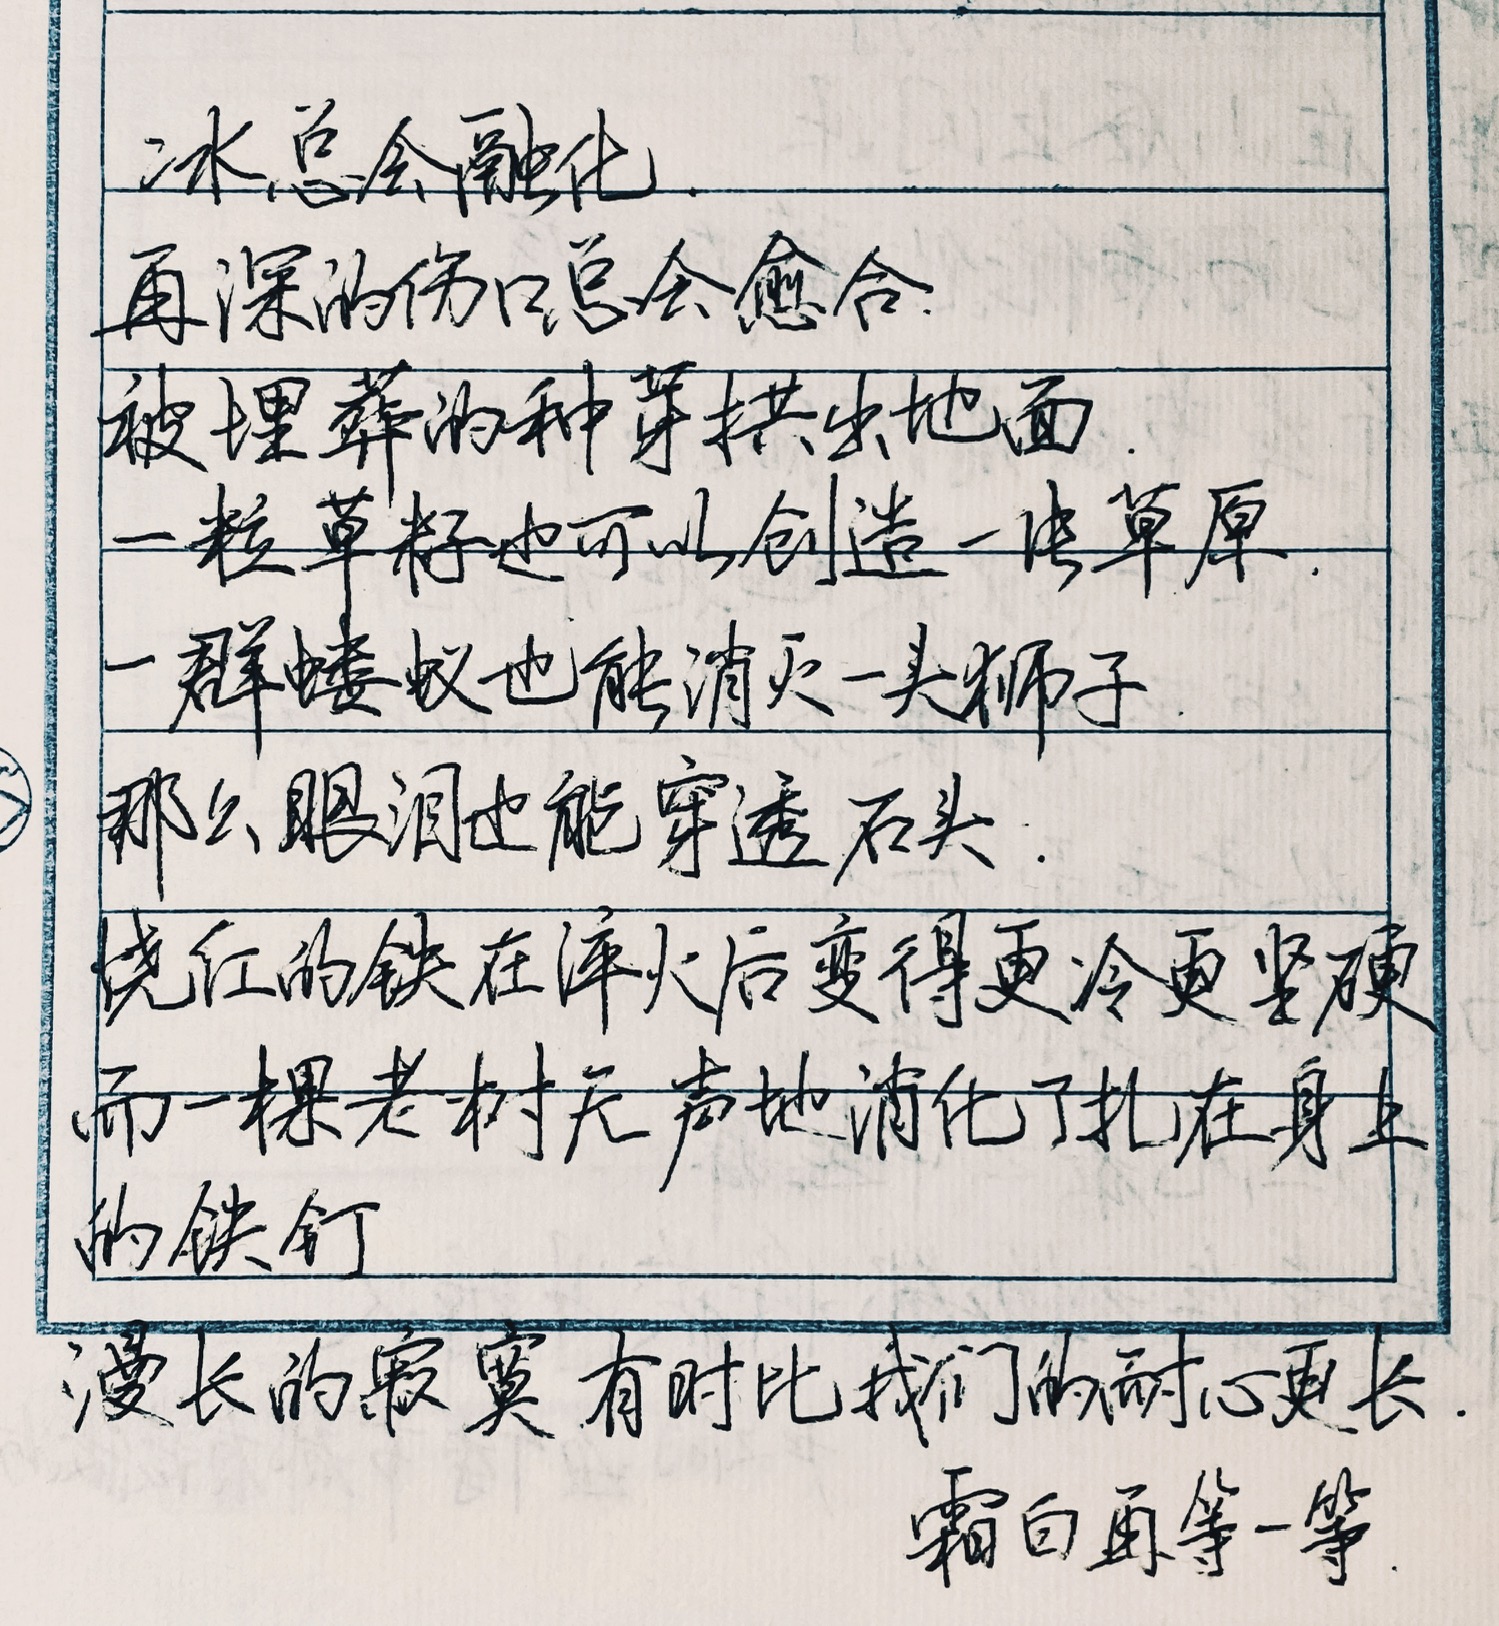 冰总会融化.
再深的伤口总会愈合.
被埋葬的种芽拱出地面.
一粒草籽也可以创造一片草原.
一群蝼蚁也能消灭一头狮子.
那么眼泪也能穿透石头.
烧红的铁在淬火后变得更冷更坚硬
而一棵老树无声地消化了扎在身上
的铁钉
漫长的寂寞有时比我们的耐心更长.
霜白再等一等.